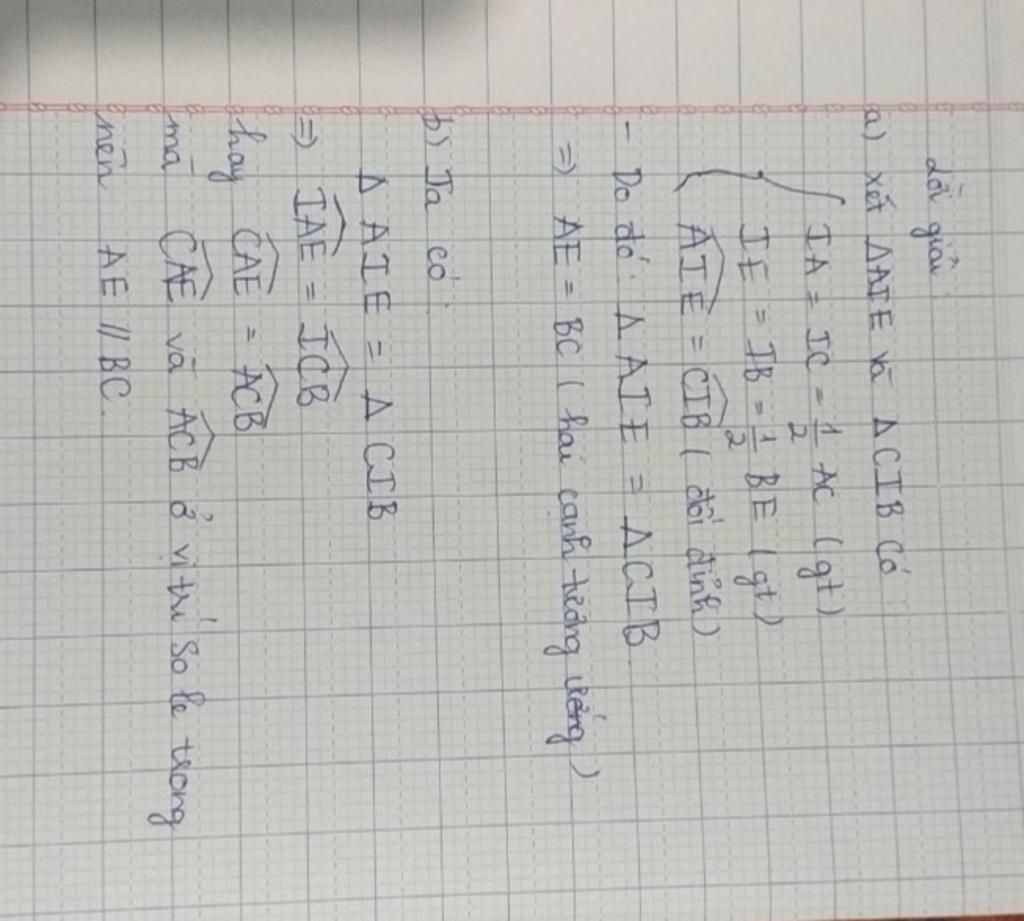 Lời giải
a) xét ΔAIE và ΔCIB có
IA = IC = 1/2 AC (gt)
IE = IB = 1/2 BE (gt)
AIE = CIB (đối đỉnh)
- Do đó: Δ AIE = ΔCIB
=> AE = BC (hai cạnh tương ứng)
b) Ta có:
Δ AIE = Δ CIB
=> IAE = ICB
hay CAE = ACB
mà CAE và ACB ở vị trí so le trong
nên AE // BC.